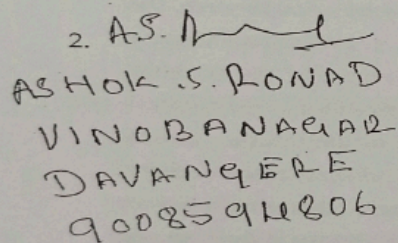 2. A.S.
ASHOK .S. RONAD
VINOBANAGAR
DAVANGERE
9008594806